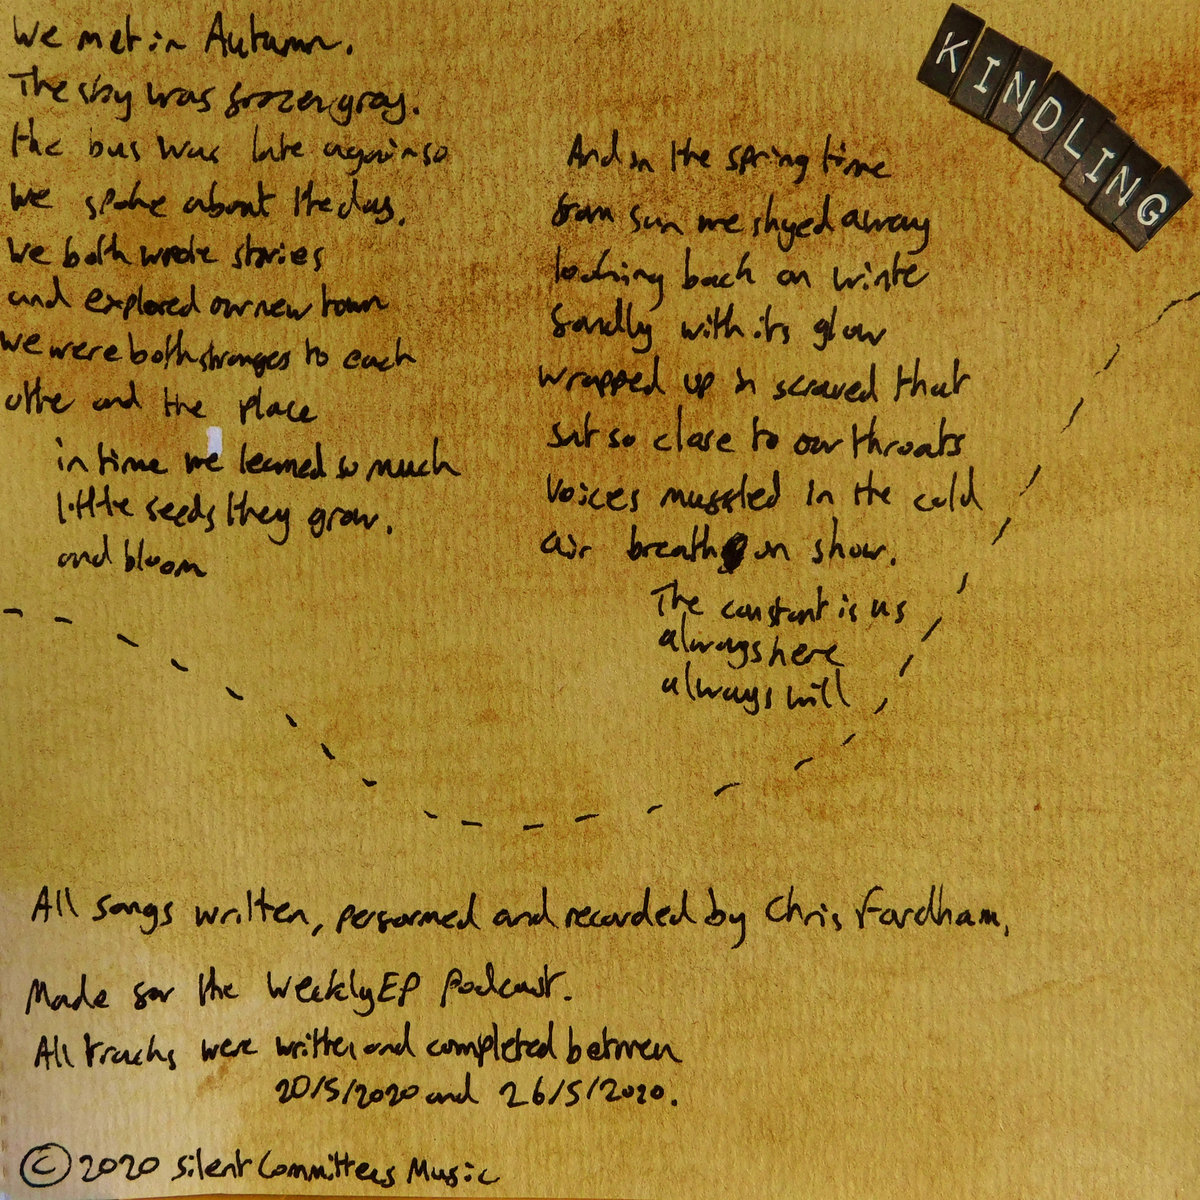 KINDLING
We met in Autumn.
The sky was frozen gray.
the bus was late again so
we spoke about the day.
we both wrote stories
and explored our new town
we were both strangers to each
other and the place
in time we learned so much
little seeds they grow.
and bloom
And in the spring time
from sun we shyed away
looking back on winter
fondly with its glow
wrapped up in scarved that
sat so close to our throats
voices muffled in the cold
air breath on show.
The constant is us
always here
always will
All songs written, performed and recorded by Chris Fordham,
Made for the Weekly EP Podcast.
All tracks were written and completed between
20/5/2020 and 26/5/2020.
© 2020 Silent Committees Music